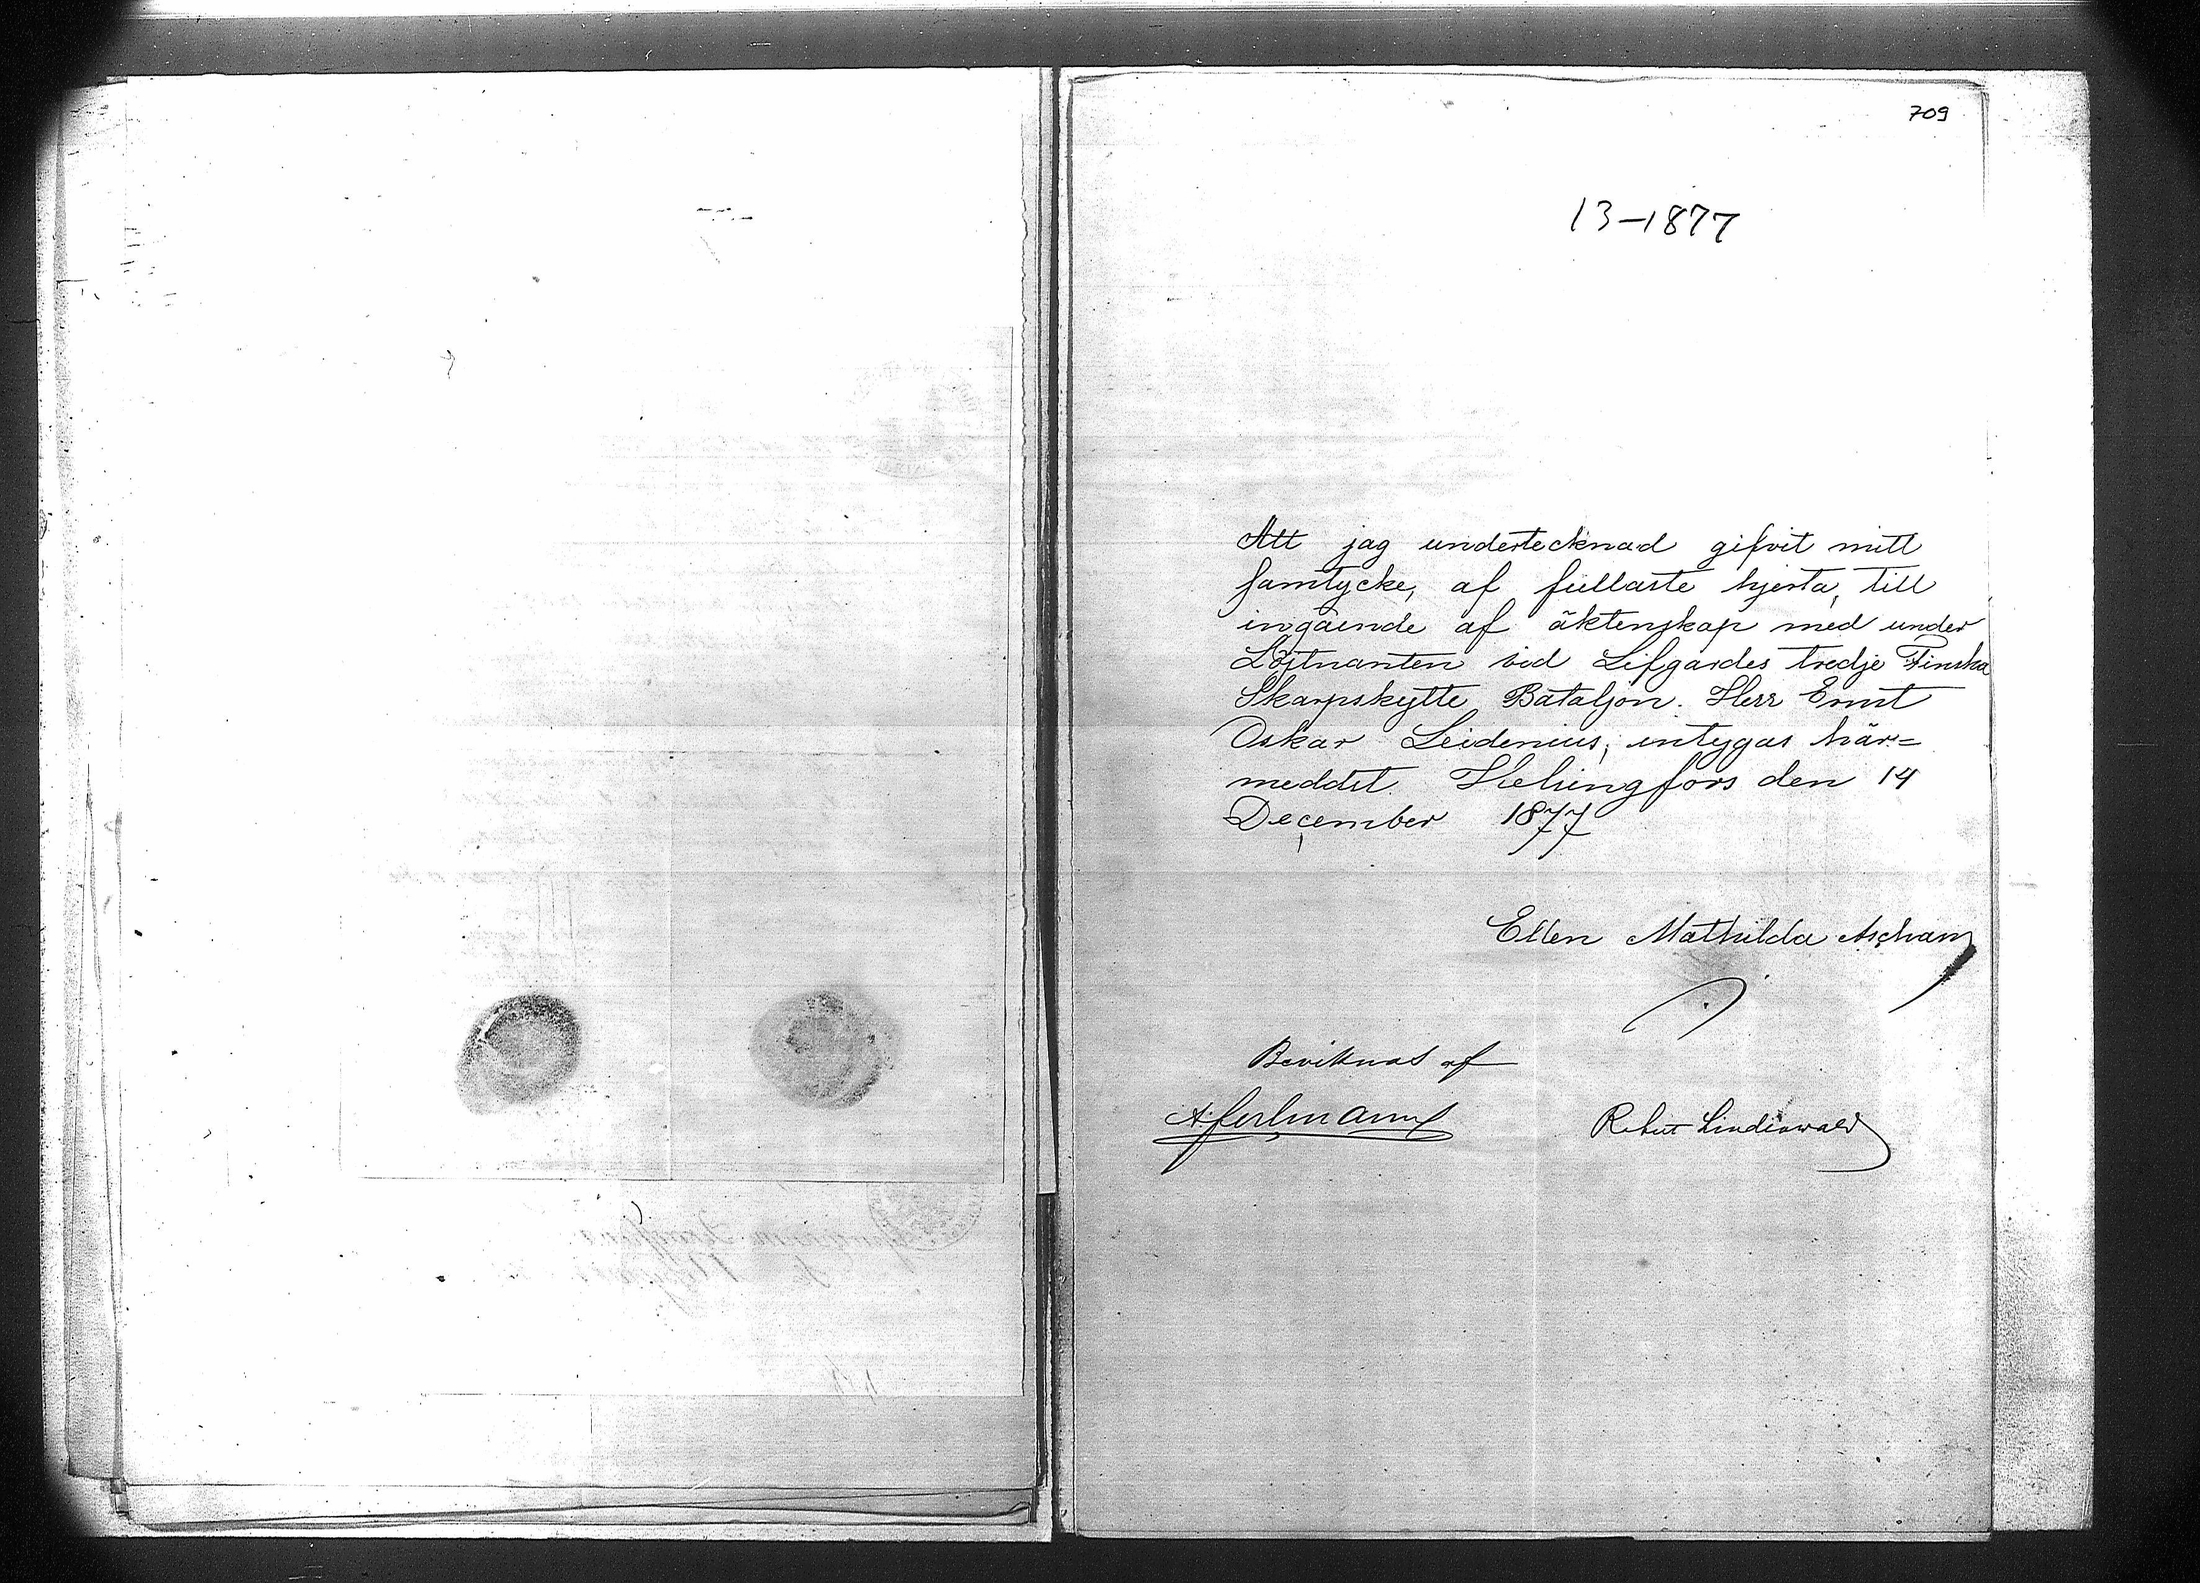 709
13-1877
Att jag undertecknad gifvit mitt
samtycke, af fullaste hjerta, till
ingående af äktenskap med under
Löjtnanten vid Lifgardes tredje Finska
Skarpskytte Bataljon. Herr Ernst
Oskar Leidenius, intygas här=
meddst. Helsingfors den 14
December 1877
Ellen Mathilda Aschan
Bevittnas af
Robert Lindenwald